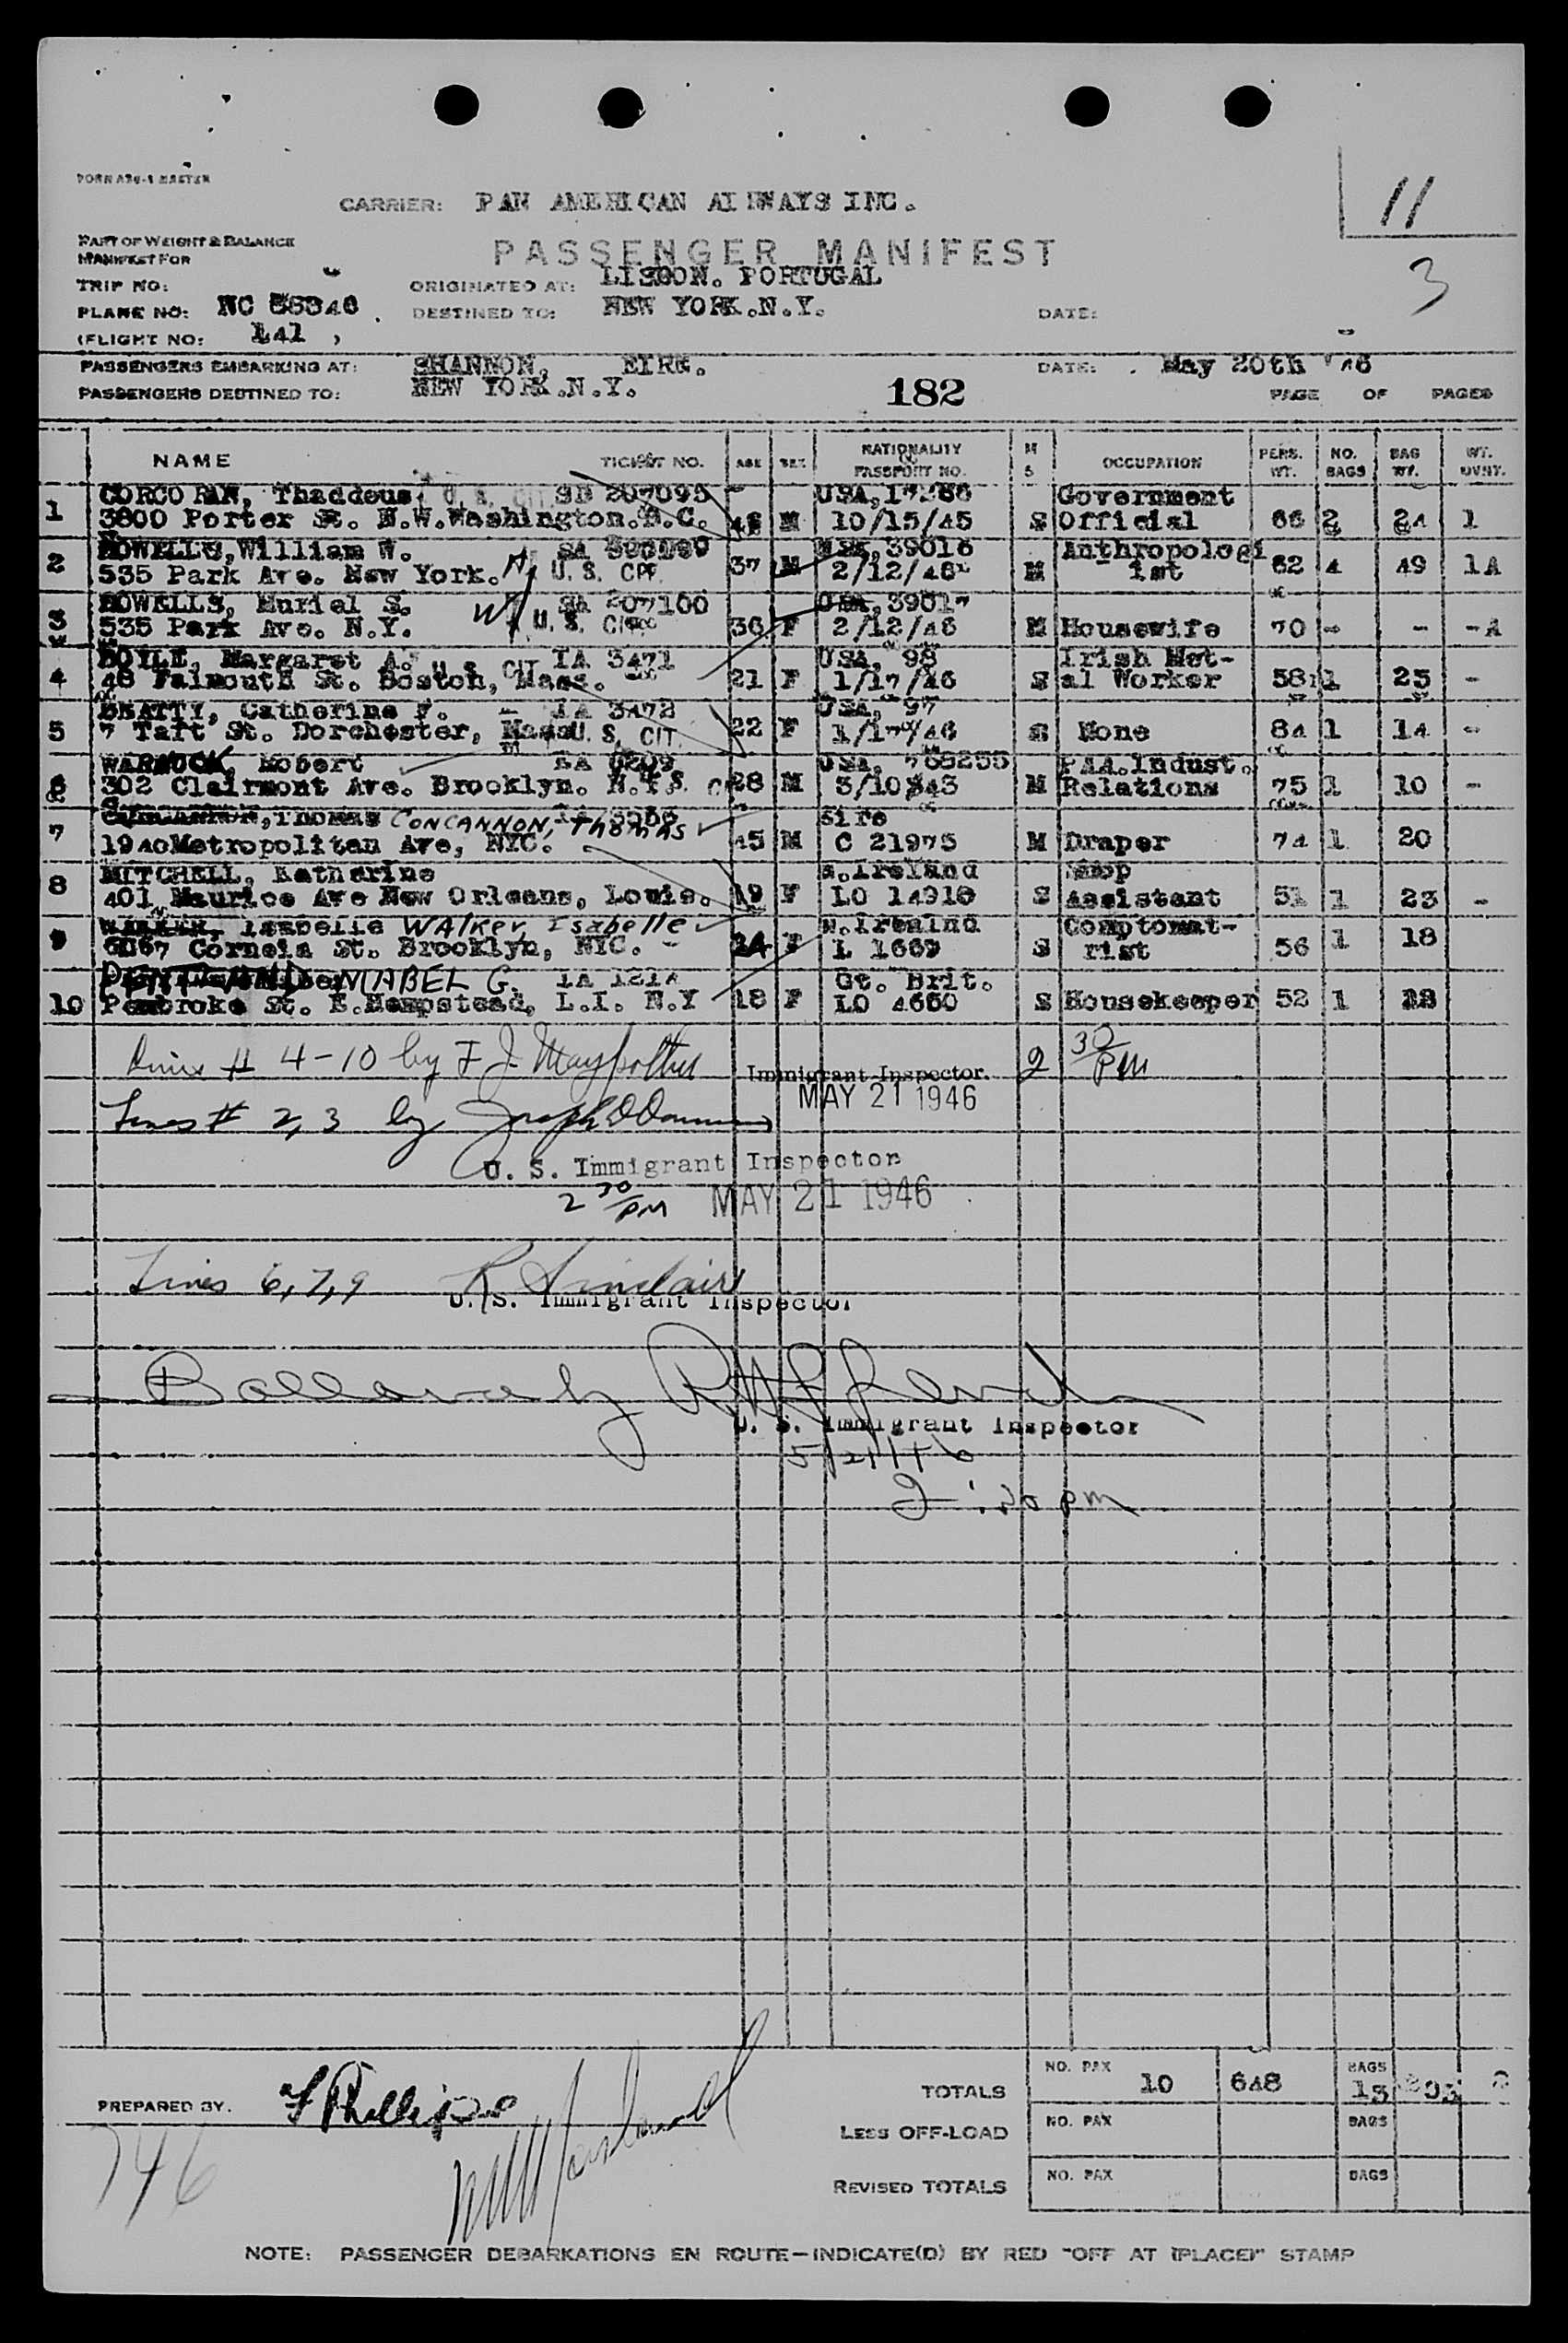 11
3
CARRIER: PAN AMERICAN AIRWAYS INC.
PART OF WEIGHT & BALANCE
MANIFEST FOR
PASSENGER MANIFEST
TRIP NO: ORIGINATED AT: LISBON. PORTUGAL
PLANE NO: NC DESTINED TO: NEW YORK.N.Y. DATE:
(FLIGHT NO: 141 )
PASSENGERS EMBARKING AT: SHANNON, EIRE. DATE: May 20th '46
PASSENGERS DESTINED TO: NEW YORK.N.Y. 182 PAGE OF PAGES
NAME TICKET NO. AGE SEX NATIONALITY & PASSPORT NO. M S OCCUPATION PERS. WT. NO. BAGS BAG WT. WT. OVNT.
1 CORCORAN, Thaddeus U.S. CIT USA, Government
3800 Porter St. N.W.Washington.D.C. M 10/15/45 S Official 66 2 24 1
2 HOWELLS,William W. SA 39016 Anthropologi
535 Park Ave. New York. U. S. 37 M 2/12/46 M ist 62 4 49 1A
3 HOWELLS, Muriel S. SA 207100 USA, 39017
535 Park Ave. N.Y. U. S. 36 F 2/12/46 M Housewife 70 - - -A
4 BOYLE, Margaret A. U. S. CIT IA 3471 USA, 98 Irish Met-
48 Falmouth St. Boston, Mass. 21 F 1/17/46 S al Worker 58 1 25 -
5 BEATTY, Catherine F. IA 3472 USA, 97
7 Taft St. Dorchester, Mass U. S. CIT. 22 F 1/17/46 S None 84 1 14 -
6 WARNOCK, Robert USA, PAA.Indust.
302 Clairmont Ave. Brooklyn. 28 M 3/10/43 M Relations 75 1 10 -
7 CONCANNON, Thomas Eire
1940Metropolitan Ave, NYC. 45 M C 21975 M Draper 74 1 20
8 MITCHELL, Katharine N.Ireland Shop
401 Maurice Ave New Orleans, Louis. 19 F LO 14918 S Assistant 51 1 23 -
9 WALKER, Isabelle WALKER, Isabelle N.Ireland Comptomat-
6067 Cornela St. Brooklyn, NYC. - 24 F L 1669 S rist 56 1 18
10 MABEL G. IA 1214 Gt. Brit.
Pembroke St. E.Hempstead, L.I. N.Y 18 F LO 4660 S Housekeeper 52 1
Lines # 4-10 by F J Immigrant Inspector. 2 30 PM
MAY 21 1946
Lines # 2, 3 by Joseph
U. S. Immigrant Inspector
2 30 PM MAY 21 1946
Lines 6, 7, 9 R Sinclair
U. S. Immigrant Inspector
U. S. Immigrant Inspector
5/21/46
2:30 pm
TOTALS NO. PAX 10 648 BAGS 15
PREPARED BY. F Phillips
LESS OFF-LOAD NO. PAX BAGS
746
REVISED TOTALS NO. PAX BAGS
NOTE: PASSENGER DEBARKATIONS EN ROUTE—INDICATE(D) BY RED "OFF AT (PLACE)" STAMP